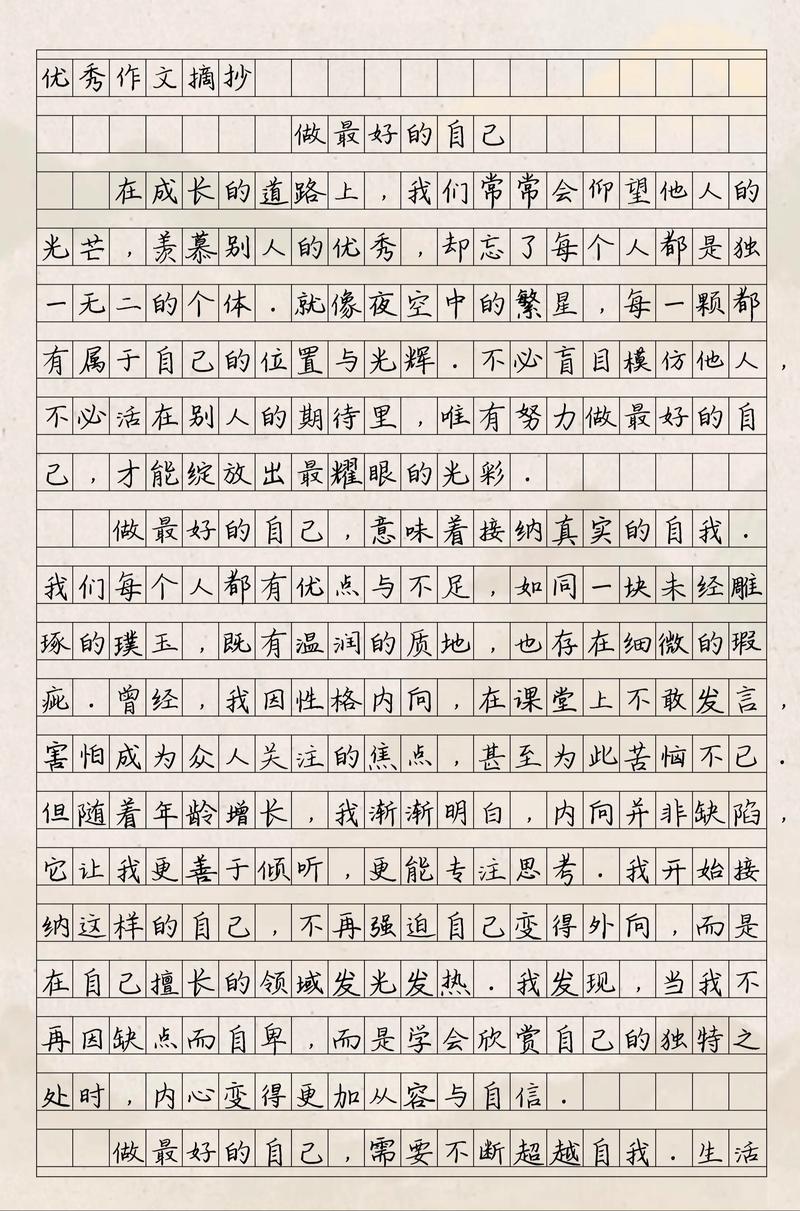 优秀作文摘抄
做最好的自己
在成长的道路上，我们常常会仰望他人的
光芒，羡慕别人的优秀，却忘了每个人都是独
一无二的个体．就像夜空中的繁星，每一颗都
有属于自己的位置与光辉．不必盲目模仿他人，
不必活在别人的期待里，唯有努力做最好的自
己，才能绽放出最耀眼的光彩．
做最好的自己，意味着接纳真实的自我．
我们每个人都有优点与不足，如同一块未经雕
琢的璞玉，既有温润的质地，也存在细微的瑕
疵．曾经，我因性格内向，在课堂上不敢发言，
害怕成为众人关注的焦点，甚至为此苦恼不已．
但随着年龄增长，我渐渐明白，内向并非缺陷，
它让我更善于倾听，更能专注思考．我开始接
纳这样的自己，不再强迫自己变得外向，而是
在自己擅长的领域发光发热．我发现，当我不
再因缺点而自卑，而是学会欣赏自己的独特之
处时，内心变得更加从容与自信．
做最好的自己，需要不断超越自我．生活